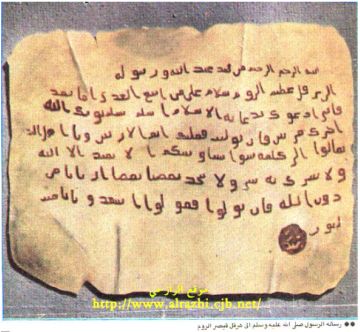 بسم الله الرحمن الرحيم من محمد عبد الله ورسوله
الى هرقل عظيم الروم سلام على من اتبع الهدى اما بعد
فانى ادعوك بدعاية الاسلام اسلم تسلم يوتك الله
اجرك مرتين فان توليت فعليك اثم الاريسيين ويا اهل الكتاب
تعالوا الى كلمة سوا بيننا وبينكم الا نعبد الا الله
ولا نشرك به شيا ولا يتخذ بعضنا بعضا اربابا من
دون الله فان تولوا فقولوا اشهدوا بانا مسـ
لمون
موقع
http://www.alrazhi.cjb.net/
رسالة الرسول صلى الله عليه وسلم الى هرقل قيصر الروم